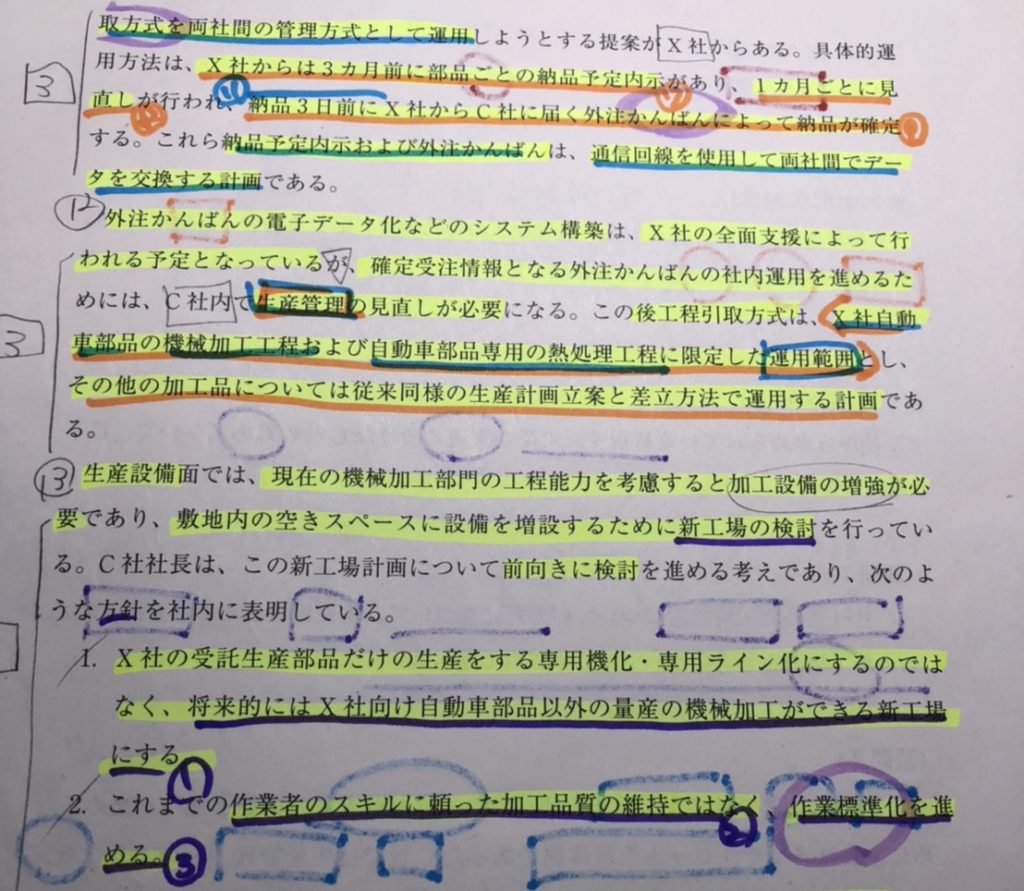 取方式を両社間の管理方式として運用しようとする提案がX社からある。具体的運
3
用方法は、X社からは3カ月前に部品ごとの納品予定内示があり、1カ月ごとに見
直しが行われ、納品3日前にX社からC社に届く外注かんばんによって納品が確定
する。これら納品予定内示および外注かんばんは、通信回線を使用して両社間でデー
タを交換する計画である。
12
外注かんばんの電子データ化などのシステム構築は、X社の全面支援によって行
われる予定となっているが、確定受注情報となる外注かんばんの社内運用を進めるた
めには、C社内で生産管理の見直しが必要になる。この後工程引取方式は、X社自動
3
車部品の機械加工工程および自動車部品専用の熱処理工程に限定した運用範囲とし、
その他の加工品については従来同様の生産計画立案と差立方法で運用する計画であ
る。
13
生産設備面では、現在の機械加工部門の工程能力を考慮すると加工設備の増強が必
要であり、敷地内の空きスペースに設備を増設するために新工場の検討を行ってい
る。C社社長は、この新工場計画について前向きに検討を進める考えであり、次のよ
うな方針を社内に表明している。
1. X社の受託生産部品だけの生産をする専用機化・専用ライン化にするのでは
なく、将来的にはX社向け自動車部品以外の量産の機械加工ができる新工場
にする。
①
2. これまでの作業者のスキルに頼った加工品質の維持ではなく、作業標準化を進
②
める。③